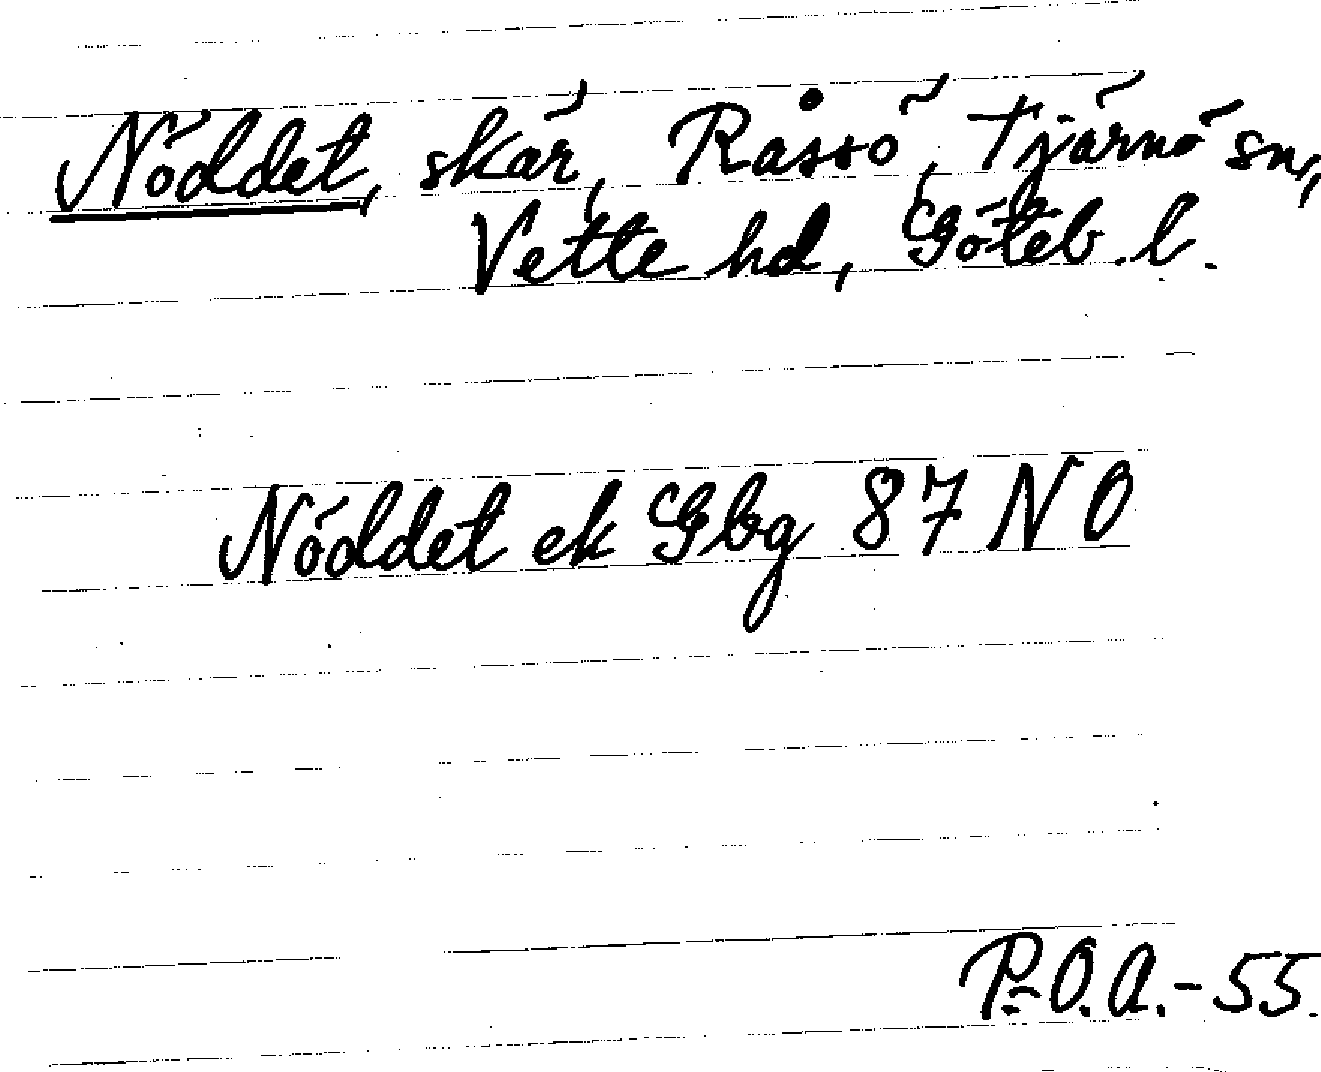 Nöddet, skär, Råssö, Tjärnö sn,
Vette hd, Göteb. l.
Nöddet ek Gbg 87 NO
P.-O.A.-55.